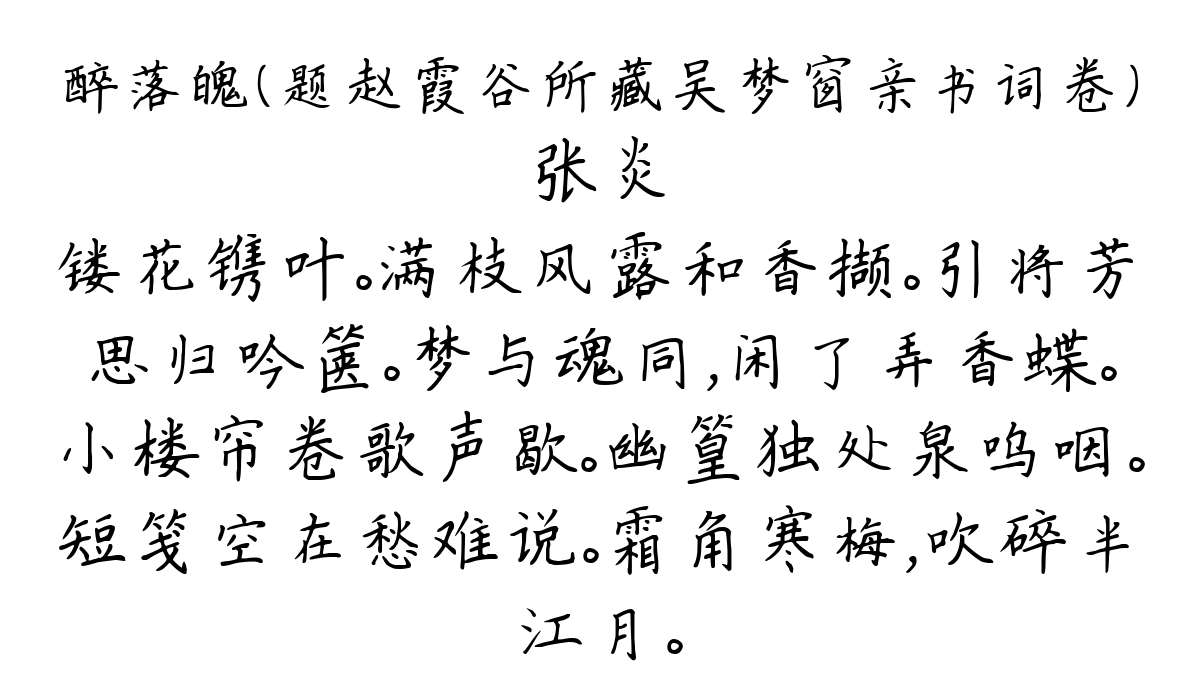 醉落魄(题赵霞谷所藏吴梦窗亲书词卷)
张炎
镂花镌叶。满枝风露和香撷。引将芳
思归吟箧。梦与魂同,闲了弄香蝶。
小楼帘卷歌声歇。幽篁独处泉呜咽。
短笺空在愁难说。霜角寒梅,吹碎半
江月。